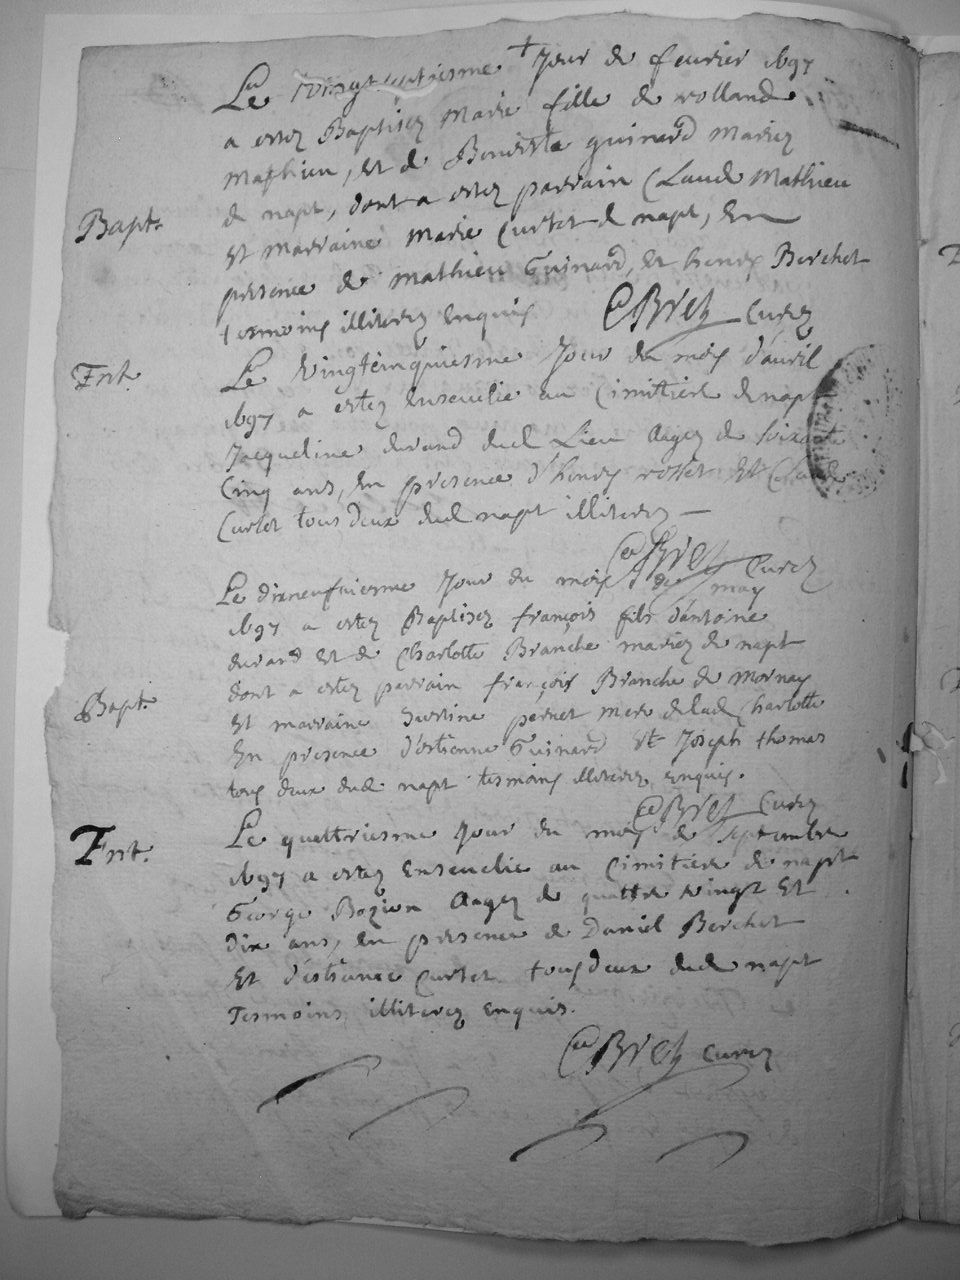 Le vingt huitiesme Jour de feurier 1697
a estez Baptisez Marie fille de rolland
Mathieu, et de Benoiste guinard Mariez
Bapt.
de napt, dont a estez parrain Claude Mathieu
et marraine Marie Curtet de napt, En
presence de mathieu Guinard, et henry Berchet
tesmoins illiterez enquis
CBret Curez
Ent.
Le vingtcinquiesme Jour du mois d'auril
1697 a estez Enseuelie au Cimittiere de napt
Jacqueline durand dud Lieu Aagez de soixante
Cinq ans, En presence d'henry rosset Et Claude
Curtet tous deux dud napt illiterez
CBret Curez
Le dixneufuiesme Jour du mois de may
1697 a estez Baptisez françois fils d'antoine
durand et de Charlotte Branche mariez de napt
Bapt.
dont a estez parrain françois Branche de Mornay
et marraine pernet mere de lad Charlotte
En presence d'estienne Guinard et Joseph thomas
tous deux dud napt tesmoins illiterez enquis.
CBret Curez
Ent.
Le quattriesme Jour du mois de septembre
1697 a estez Enseuelie au Cimitiere de napt
George Bozion Aagez de quattre vingt Et
dix ans, En presence de Daniel Berchet
Et d'estienne Curtet tous deux dud napt
Tesmoins illiterez enquis.
CBret Curez